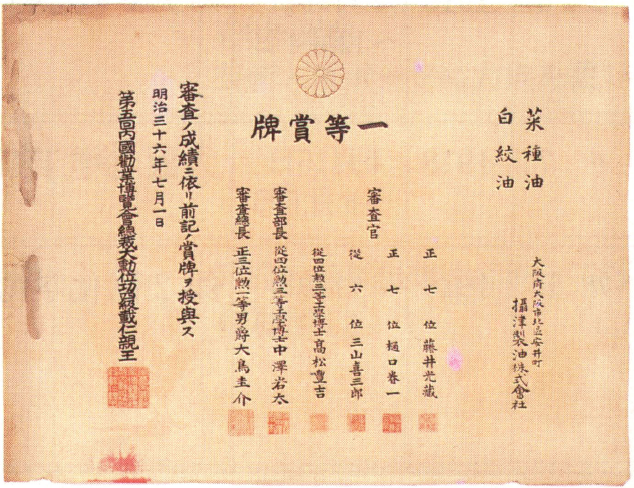 一等賞牌
菜種油
白絞油
大阪府大阪市北區安井町
攝津製油株式會社
審査官
正七位藤井光藏
正七位樋口眷一
從六位三山喜三郎
從四位勲三等工學博士高松豊吉
審査部長從四位勲三等工學博士中澤岩太
審査總長正三位勲一等男爵大鳥圭介
審査ノ成績ニ依リ前記ノ賞牌ヲ授與ス
明治三十六年七月一日
第五回内國勸業博覽會總裁大勲位功四級載仁親王